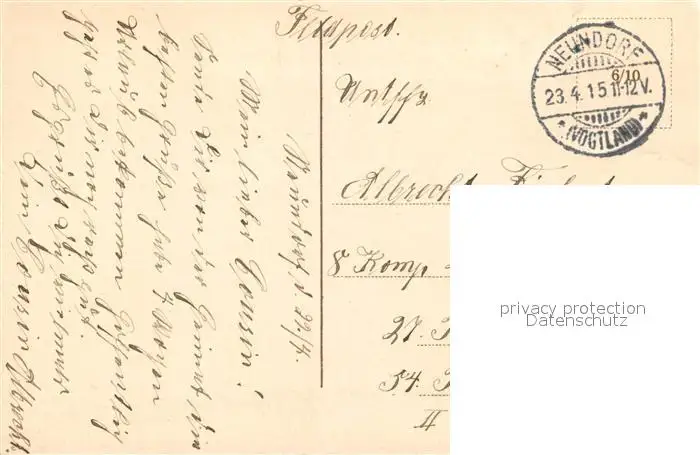 Feldpost.
NEUNDORF
6/10
23.4.15 11-12V.
* (VOGTLAND) *
Untffz.
Albrecht
8 Komp.
27.
54.
II
privacy protection
Datenschutz
Neundorf d. 22/4.
Mein lieber Cousin!
Sende Dir von der Heimat die
besten Grüße habe 7 Wochen
Urlaub bekommen Hoffentlich
geht es Dir noch gut.
Es grüßt Dich
Dein Cousin Albrecht.